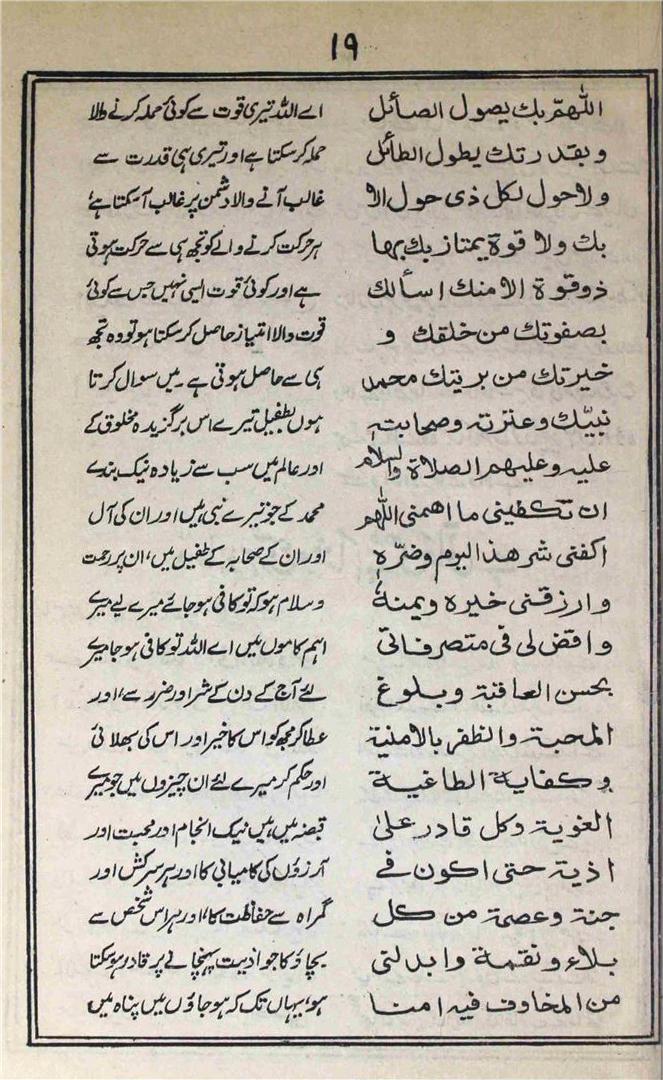 ١٩
اللهمّ بك يصول الصائل
وبقدرتك يطول الطائل
ولاحول لكل ذى حول الا
بك ولا قوة يمتاز بك بها
ذوقوة الا منك اسألك
بصفوتك من خلقك و
خيرتك من بريتك محمد
نبيّك وعترته وصحابته
عليه وعليهم الصلاة والسلام
ان تكفينى ما اهمنى اللهم
اكفنى شر هذا اليوم وضرّه
وارزقنى خيره ويمنه
واقض لى فى متصرفاتى
بحسن العاقبة وبلوغ
المحبة والظفر بالامنية
وكفاية الطاغية
الغوية وكل قادر على
اذية حتى اكون فے
جنة وعصمة من كل
بلاء ونقمة وابدلنى
من المخاوف فيه امنا
اے اللہ تیری قوت سے کوئی حملہ کرنے والا
حملہ کرسکتا ہے اور تیری ہی قدرت سے
غالب آنے والا دشمن پر غالب آسکتا ہے،
ہر حرکت کرنے والے کو تجھ ہی سے حرکت ہوتی
ہے اور کوئی قوت ایسی نہیں جس سے کوئی
قوت والا امتیاز حاصل کرسکتا ہو تو وہ تجھ
ہی سے حاصل ہوتی ہے۔ میں سوال کرتا
ہوں بطفیل تیرے اس برگزیدہ مخلوق کے
اور عالم میں سب سے زیادہ نیک بندے
محمد کے جو تیرے نبی ہیں اور ان کی آل
اور ان کے صحابہ کے طفیل میں، ان پر رحمت
و سلام ہو کہ تو کافی ہوجائے میرے لیے میرے
اہم کاموں میں اے اللہ تو کافی ہوجا میرے
لئے آج کے دن کے شر اور ضرر سے، اور
عطا کر مجھ کو اس کا خیر اور اس کی بھلائی
اور حکم کر میرے لئے ان چیزوں میں جو میرے
قبضہ میں ہیں نیک انجام اور محبت اور
آرزوں کی کامیابی کا اور ہر سرکش اور
گمراہ سے حفاظت کا، اور ہر اس شخص سے
بچاؤ کا جو اذیت پہنچانے پر قادر ہوسکتا
ہو، یہاں تک کہ ہوجاؤں میں پناہ میں